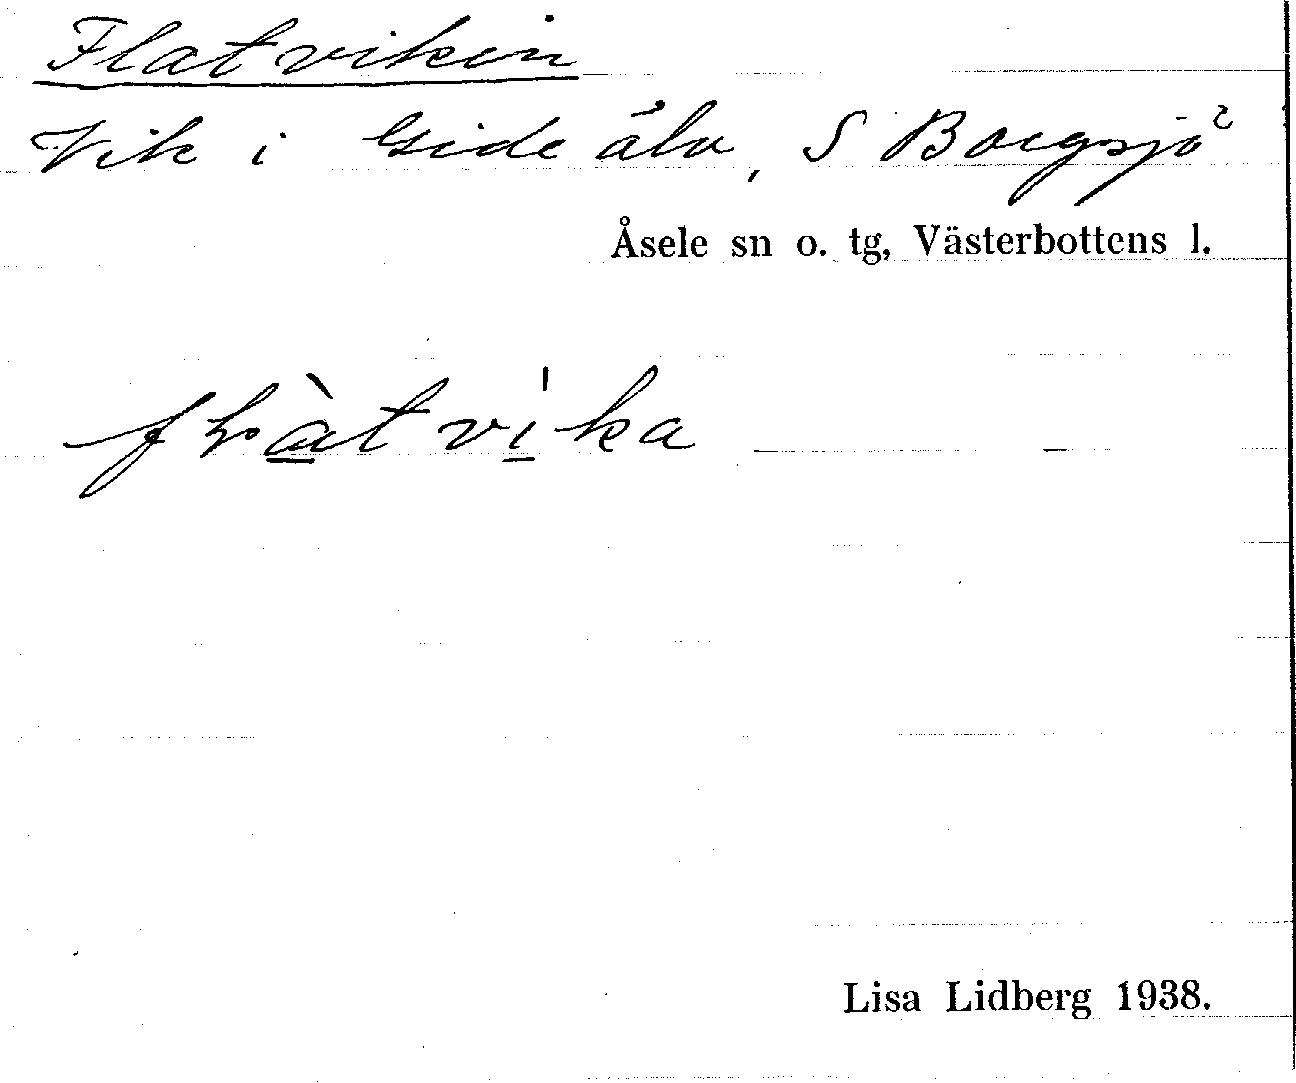 Flatviken
Vik i Gide älv, S Borgsjö
Åsele sn o. tg, Västerbottens l.
fḷàtvi̍ka
Lisa Lidberg 1938.